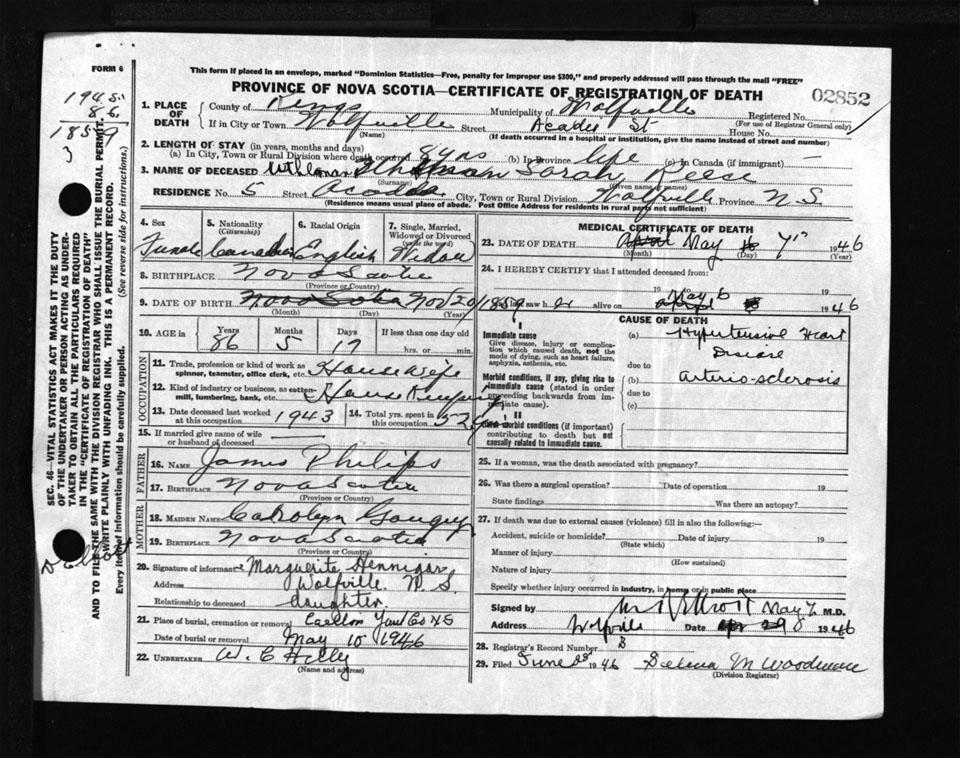 FORM 6
This form if placed in an envelope, marked "Dominion Statistics—Free, penalty for improper use $300," and properly addressed will pass through the mail "FREE"
PROVINCE OF NOVA SCOTIA—CERTIFICATE OF REGISTRATION OF DEATH
02852
1. PLACE OF DEATH
County of Kings Municipality of Wolfville Registered No.
(For use of Registrar General only)
If in City or Town Wolfville Street Acadia St House No.
(Name) (If death occurred in a hospital or institution, give the name instead of street and number)
2. LENGTH OF STAY (in years, months and days)
(a) In City, Town or Rural Division where death occurred 8 yrs (b) In Province life (c) In Canada (if immigrant) —
3. NAME OF DECEASED Sarah Reese
(Surname) (Given name or names)
RESIDENCE No. 5 Street Acadia City, Town or Rural Division Wolfville Province N.S.
(Residence means usual place of abode. Post Office Address for residents in rural parts not sufficient)
4. Sex Female
5. Nationality (Citizenship) Canadian
6. Racial Origin English
7. Single, Married, Widowed or Divorced (write the word) Widow
8. BIRTHPLACE Nova Scotia
(Province or Country)
9. DATE OF BIRTH Nova Scotia Nov 20/1859
(Month) (Day) (Year)
10. AGE in Years 86 Months 5 Days 17 If less than one day old hrs. or min.
OCCUPATION
11. Trade, profession or kind of work as spinner, teamster, office clerk, etc. Housewife
12. Kind of industry or business, as cotton-mill, lumbering, bank, etc. House Keeping
13. Date deceased last worked at this occupation 1943
14. Total yrs. spent in this occupation 52 yrs
15. If married give name of wife or husband of deceased
FATHER
16. NAME James Philips
17. BIRTHPLACE Nova Scotia
(Province or Country)
MOTHER
18. MAIDEN NAME Carolyn
19. BIRTHPLACE Nova Scotia
(Province or Country)
20. Signature of informant Marguerite Hennigar
Address Wolfville N.S.
Relationship to deceased daughter
21. Place of burial, cremation or removal
Date of burial or removal May 10 1946
22. UNDERTAKER W. C.
(Name and address)
MEDICAL CERTIFICATE OF DEATH
23. DATE OF DEATH April May 7th 1946
(Month) (Day) (Year)
24. I HEREBY CERTIFY that I attended deceased from:
19 to 19
last saw her alive on May 6 1946
CAUSE OF DEATH
I
Immediate cause
Give disease, injury or complication which caused death, not the mode of dying, such as heart failure, asphyxia, asthenia, etc.
(a) Hypertensive Heart Disease
due to
Morbid conditions, if any, giving rise to immediate cause (stated in order proceeding backwards from immediate cause)
(b) arterio-sclerosis
due to
(c)
II
Other morbid conditions (if important) contributing to death but not causally related to immediate cause.
25. If a woman, was the death associated with pregnancy?
26. Was there a surgical operation? Date of operation 19
State findings Was there an autopsy?
27. If death was due to external causes (violence) fill in also the following:—
Accident, suicide or homicide? Date of injury 19
(State which)
Manner of injury
(How sustained)
Nature of injury
Specify whether injury occurred in industry, in home or in public place
Signed by May 7 M.D.
Address Wolfville Date 1946
28. Registrar's Record Number
29. Filed June 1946 M Woodman
(Division Registrar)
SEC. 46—VITAL STATISTICS ACT MAKES IT THE DUTY
OF THE UNDERTAKER OR PERSON ACTING AS UNDER-
TAKER TO OBTAIN ALL THE PARTICULARS REQUIRED
IN THE "CERTIFICATE OF REGISTRATION OF DEATH"
AND TO FILE THE SAME WITH THE DIVISION REGISTRAR WHO SHALL ISSUE THE BURIAL PERMIT.
WRITE PLAINLY WITH UNFADING INK. THIS IS A PERMANENT RECORD.
Every item of Information should be carefully supplied. (See reverse side for instructions.)